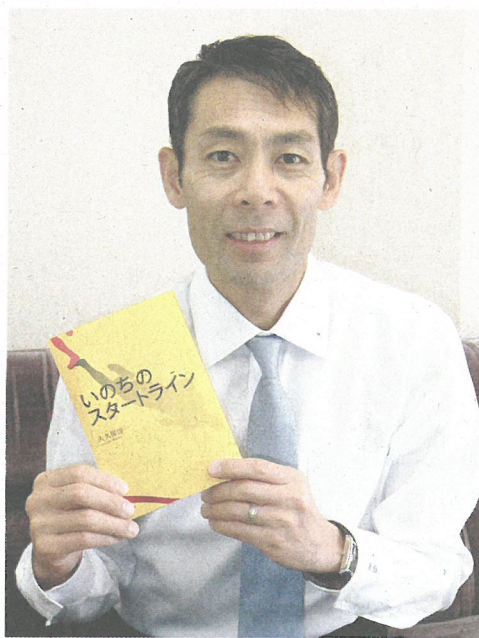 いのちの
スタートライン